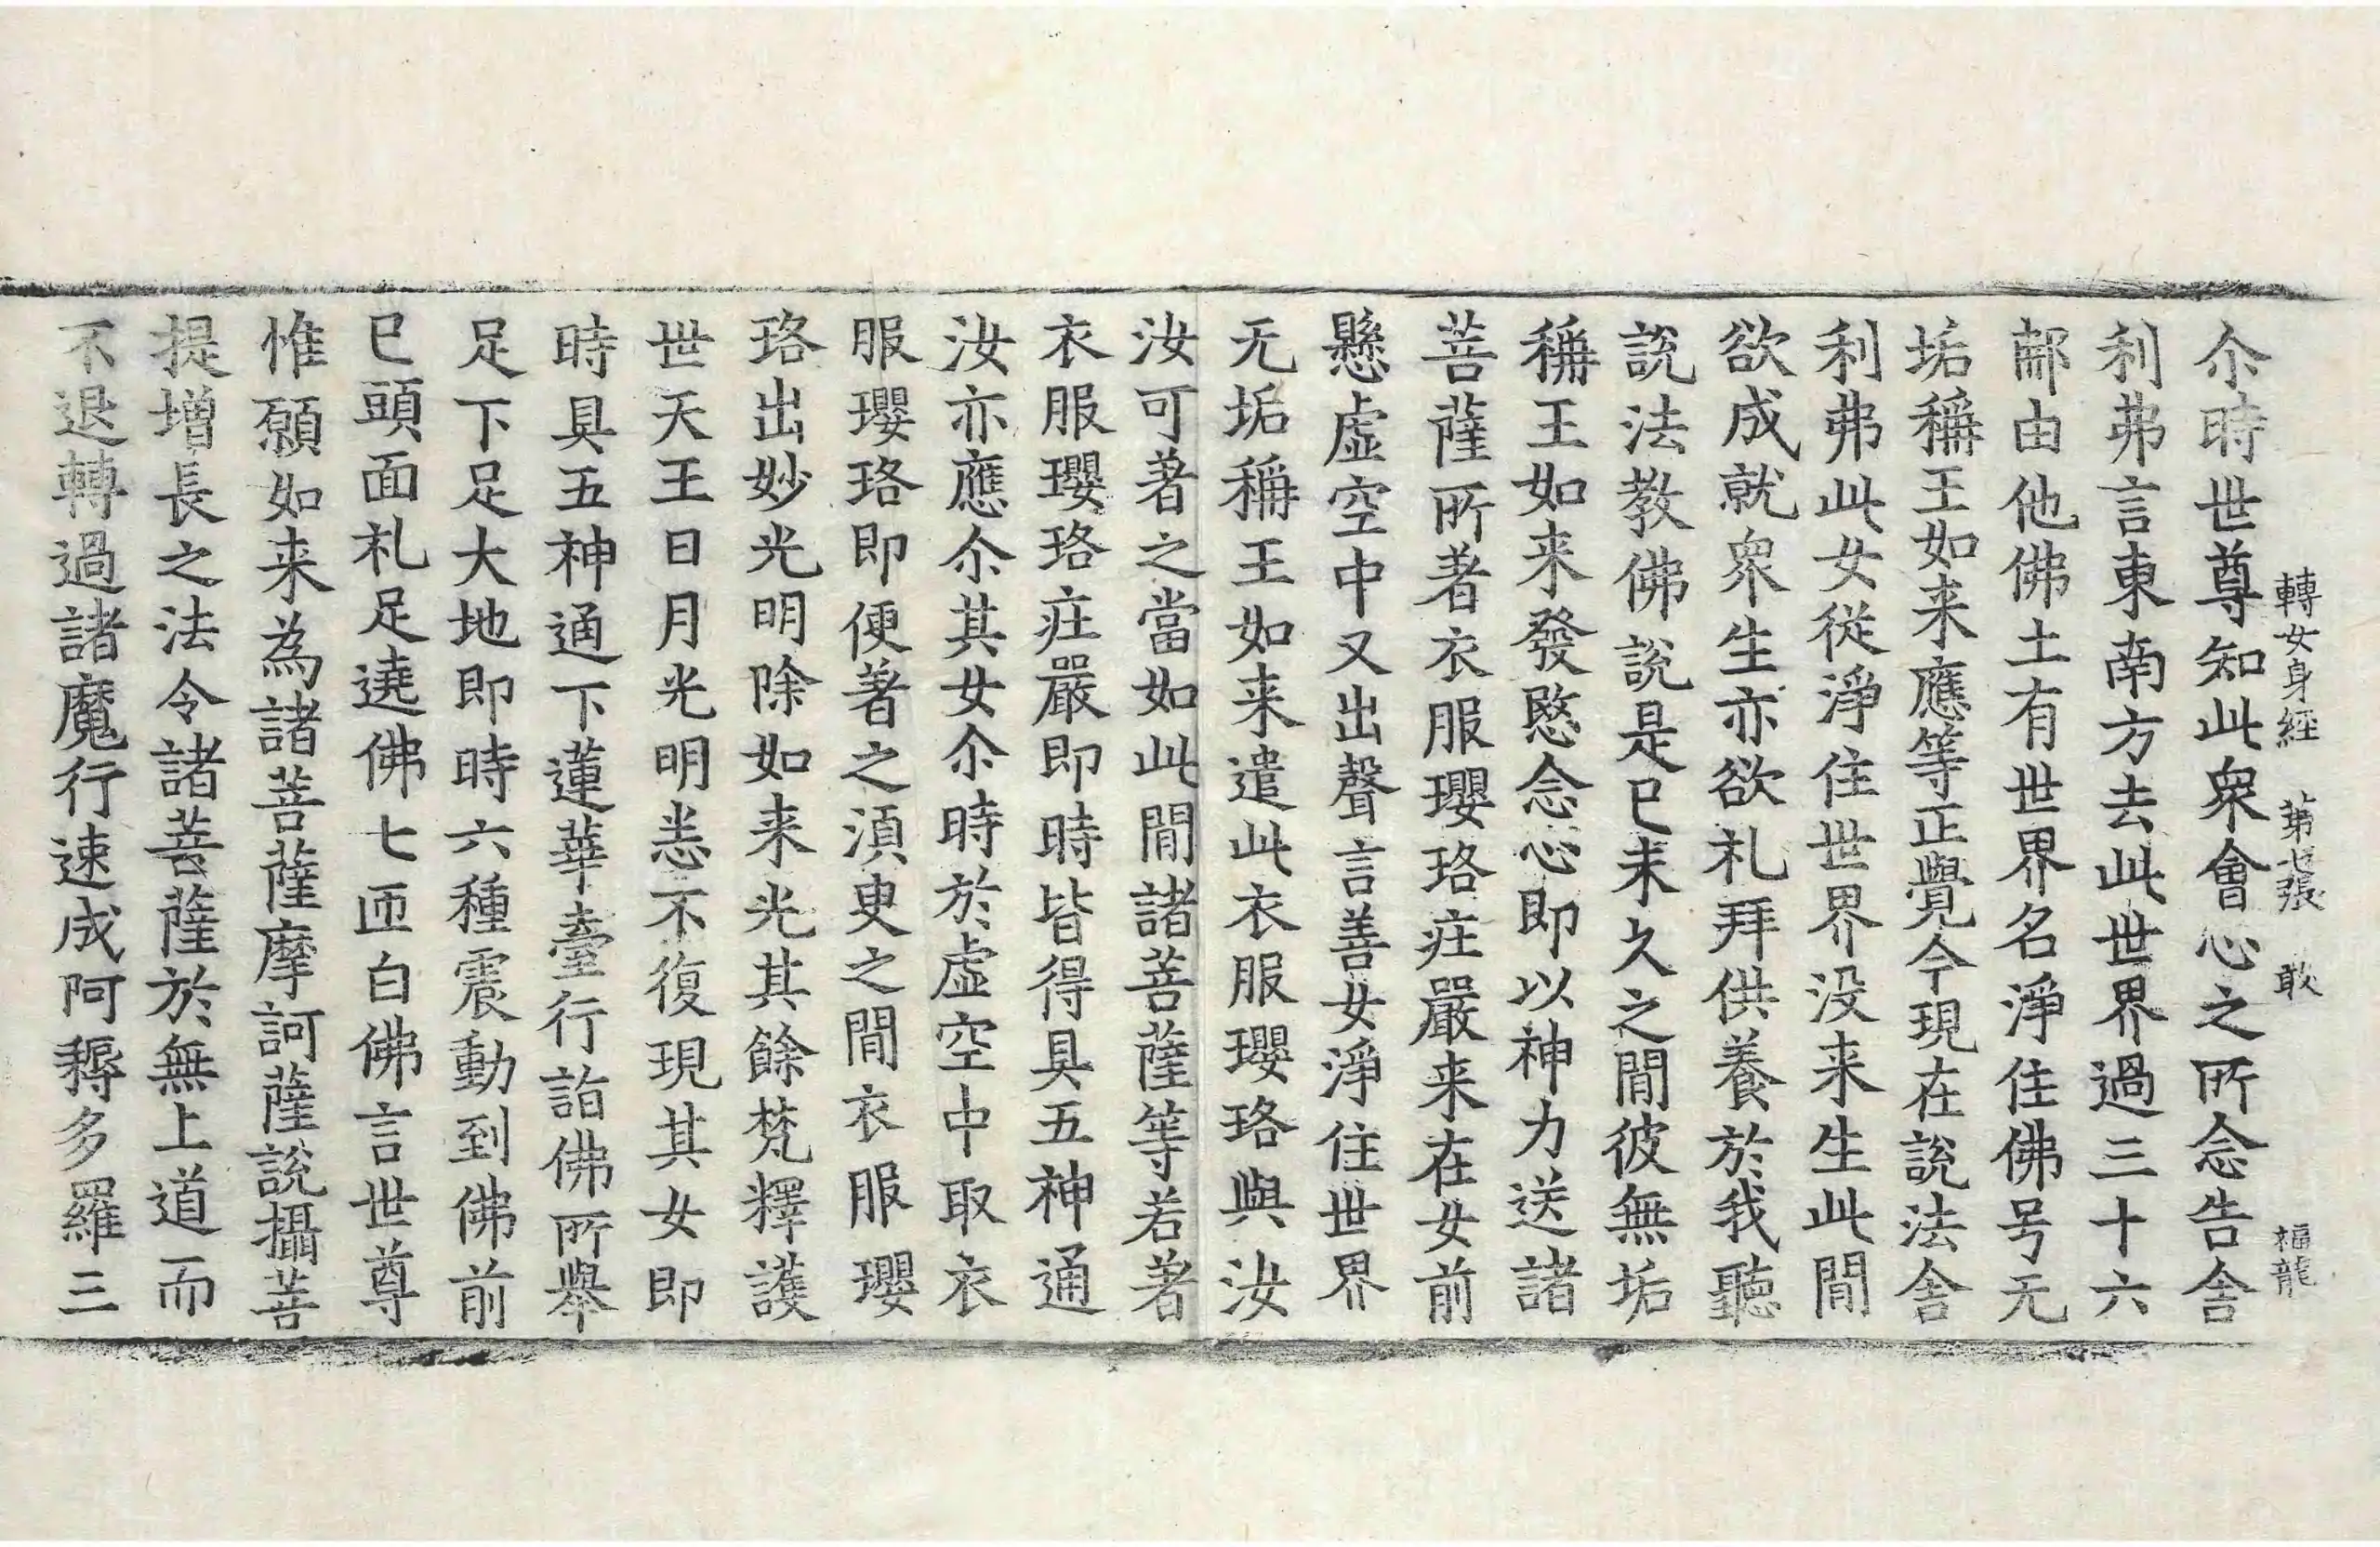 轉女身經　第七張　敢　福龍
尒時世尊知此衆會心之所念告舍
利弗言東南方去此世界過三十六
鄗由他佛土有世界名淨住佛号无
垢稱王如来應等正覺今現在説法舍
利弗此女從淨住世界没来生此閒
欲成就衆生亦欲礼拜供養於我聽
説法教佛説是已未久之閒彼無垢
稱王如来發愍念心即以神力送諸
菩薩所著衣服瓔珞莊嚴来在女前
懸虛空中又出聲言善女淨住世界
无垢稱王如来遣此衣服瓔珞與汝
汝可著之當如此閒諸菩薩等若著
衣服瓔珞莊嚴即時皆得具五神通
汝亦應尒其女尒時於虛空中取衣
服瓔珞即便著之湏臾之閒衣服瓔
珞出妙光明除如来光其餘梵釋護
世天王日月光明悉不復現其女即
時具五神通下蓮華臺行詣佛所舉
足下足大地即時六種震動到佛前
已頭面礼足遶佛七匝白佛言世尊
惟願如来為諸菩薩摩訶薩説攝菩
提增長之法令諸菩薩於無上道而
不退轉過諸魔行速成阿耨多羅三